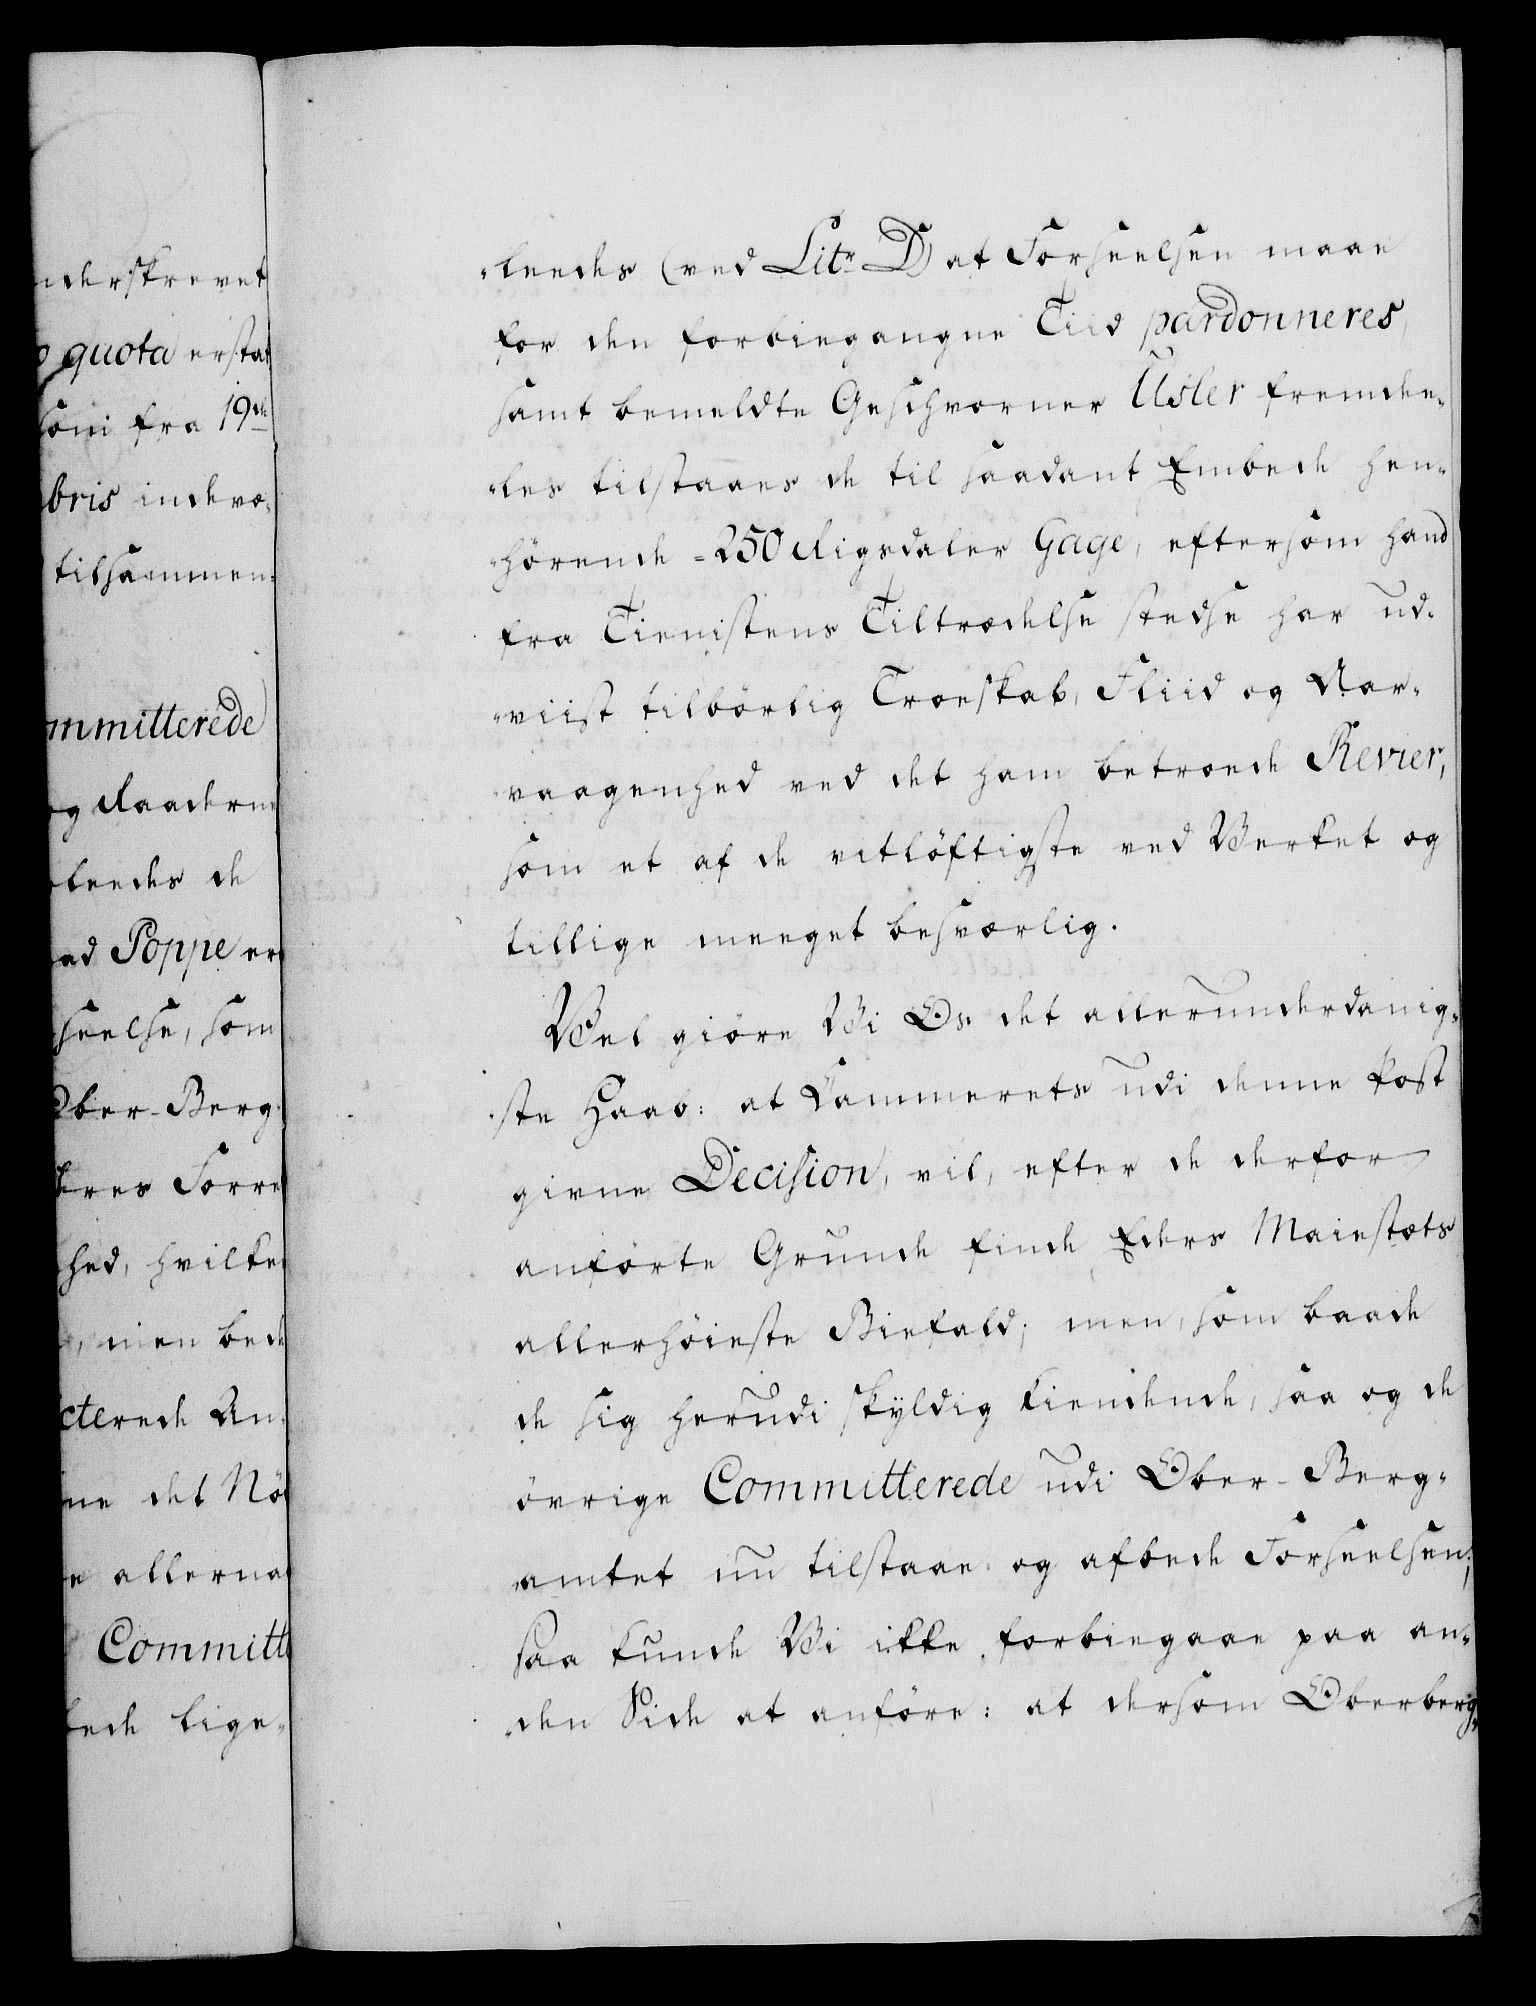 nderskrevet
quota erstat
soni fra 19de
bris indevæ-
tilsammen-
mmitterede
og Raaderne
leedes de
ad Poppe er
seelse, som
Ober-Berg-
eres Forre
hed, hvilke
, men bede
cterede An-
ne det Nö
e allerna
Committe
bede lige-
-leedes (ved Litr D) at Forseelsen maae
for den forbiegangne Tiid pardonneres,
samt bemeldte Geschworner Üsler fremdee-
-les tilstaaes de til saadant Embede hen-
-hörende =250 Rigsdaler Gage, eftersom hand
fra Tienistens Tiltrædelse stedse har ud-
-viist tilbörlig Troeskab, Fliid og Aar-
-vaagenhed ved det ham betroede Revier,
som et af de vitlöftigste ved Verket og
tillige meeget besværlig.
Vel giöre Vi Os det allerunderdanig-
-ste Haab: at Cammerets udi denne Post
givne Decision, vil, efter de derfor
anförte Grunde finde Eders Maiestæts
allerhöieste Biefald; men, som baade
de sig herudi skyldig kiendende, saa og de
övrige Committerede udi Ober-Berg-
-amtet nu tilstaae og afbede Forseelsen;
saa kunde Vi ikke forbiegaae paa an-
-den Side at anföre: at dersom Oberberg-